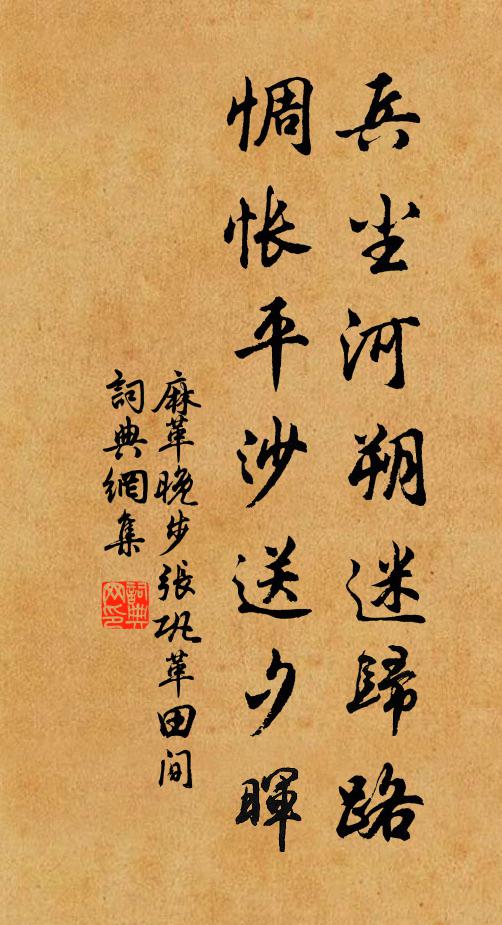 兵尘河朔迷歸路
惆怅平沙送夕暉
麻革晚步張巩革田间
詞典網集
詞典网印